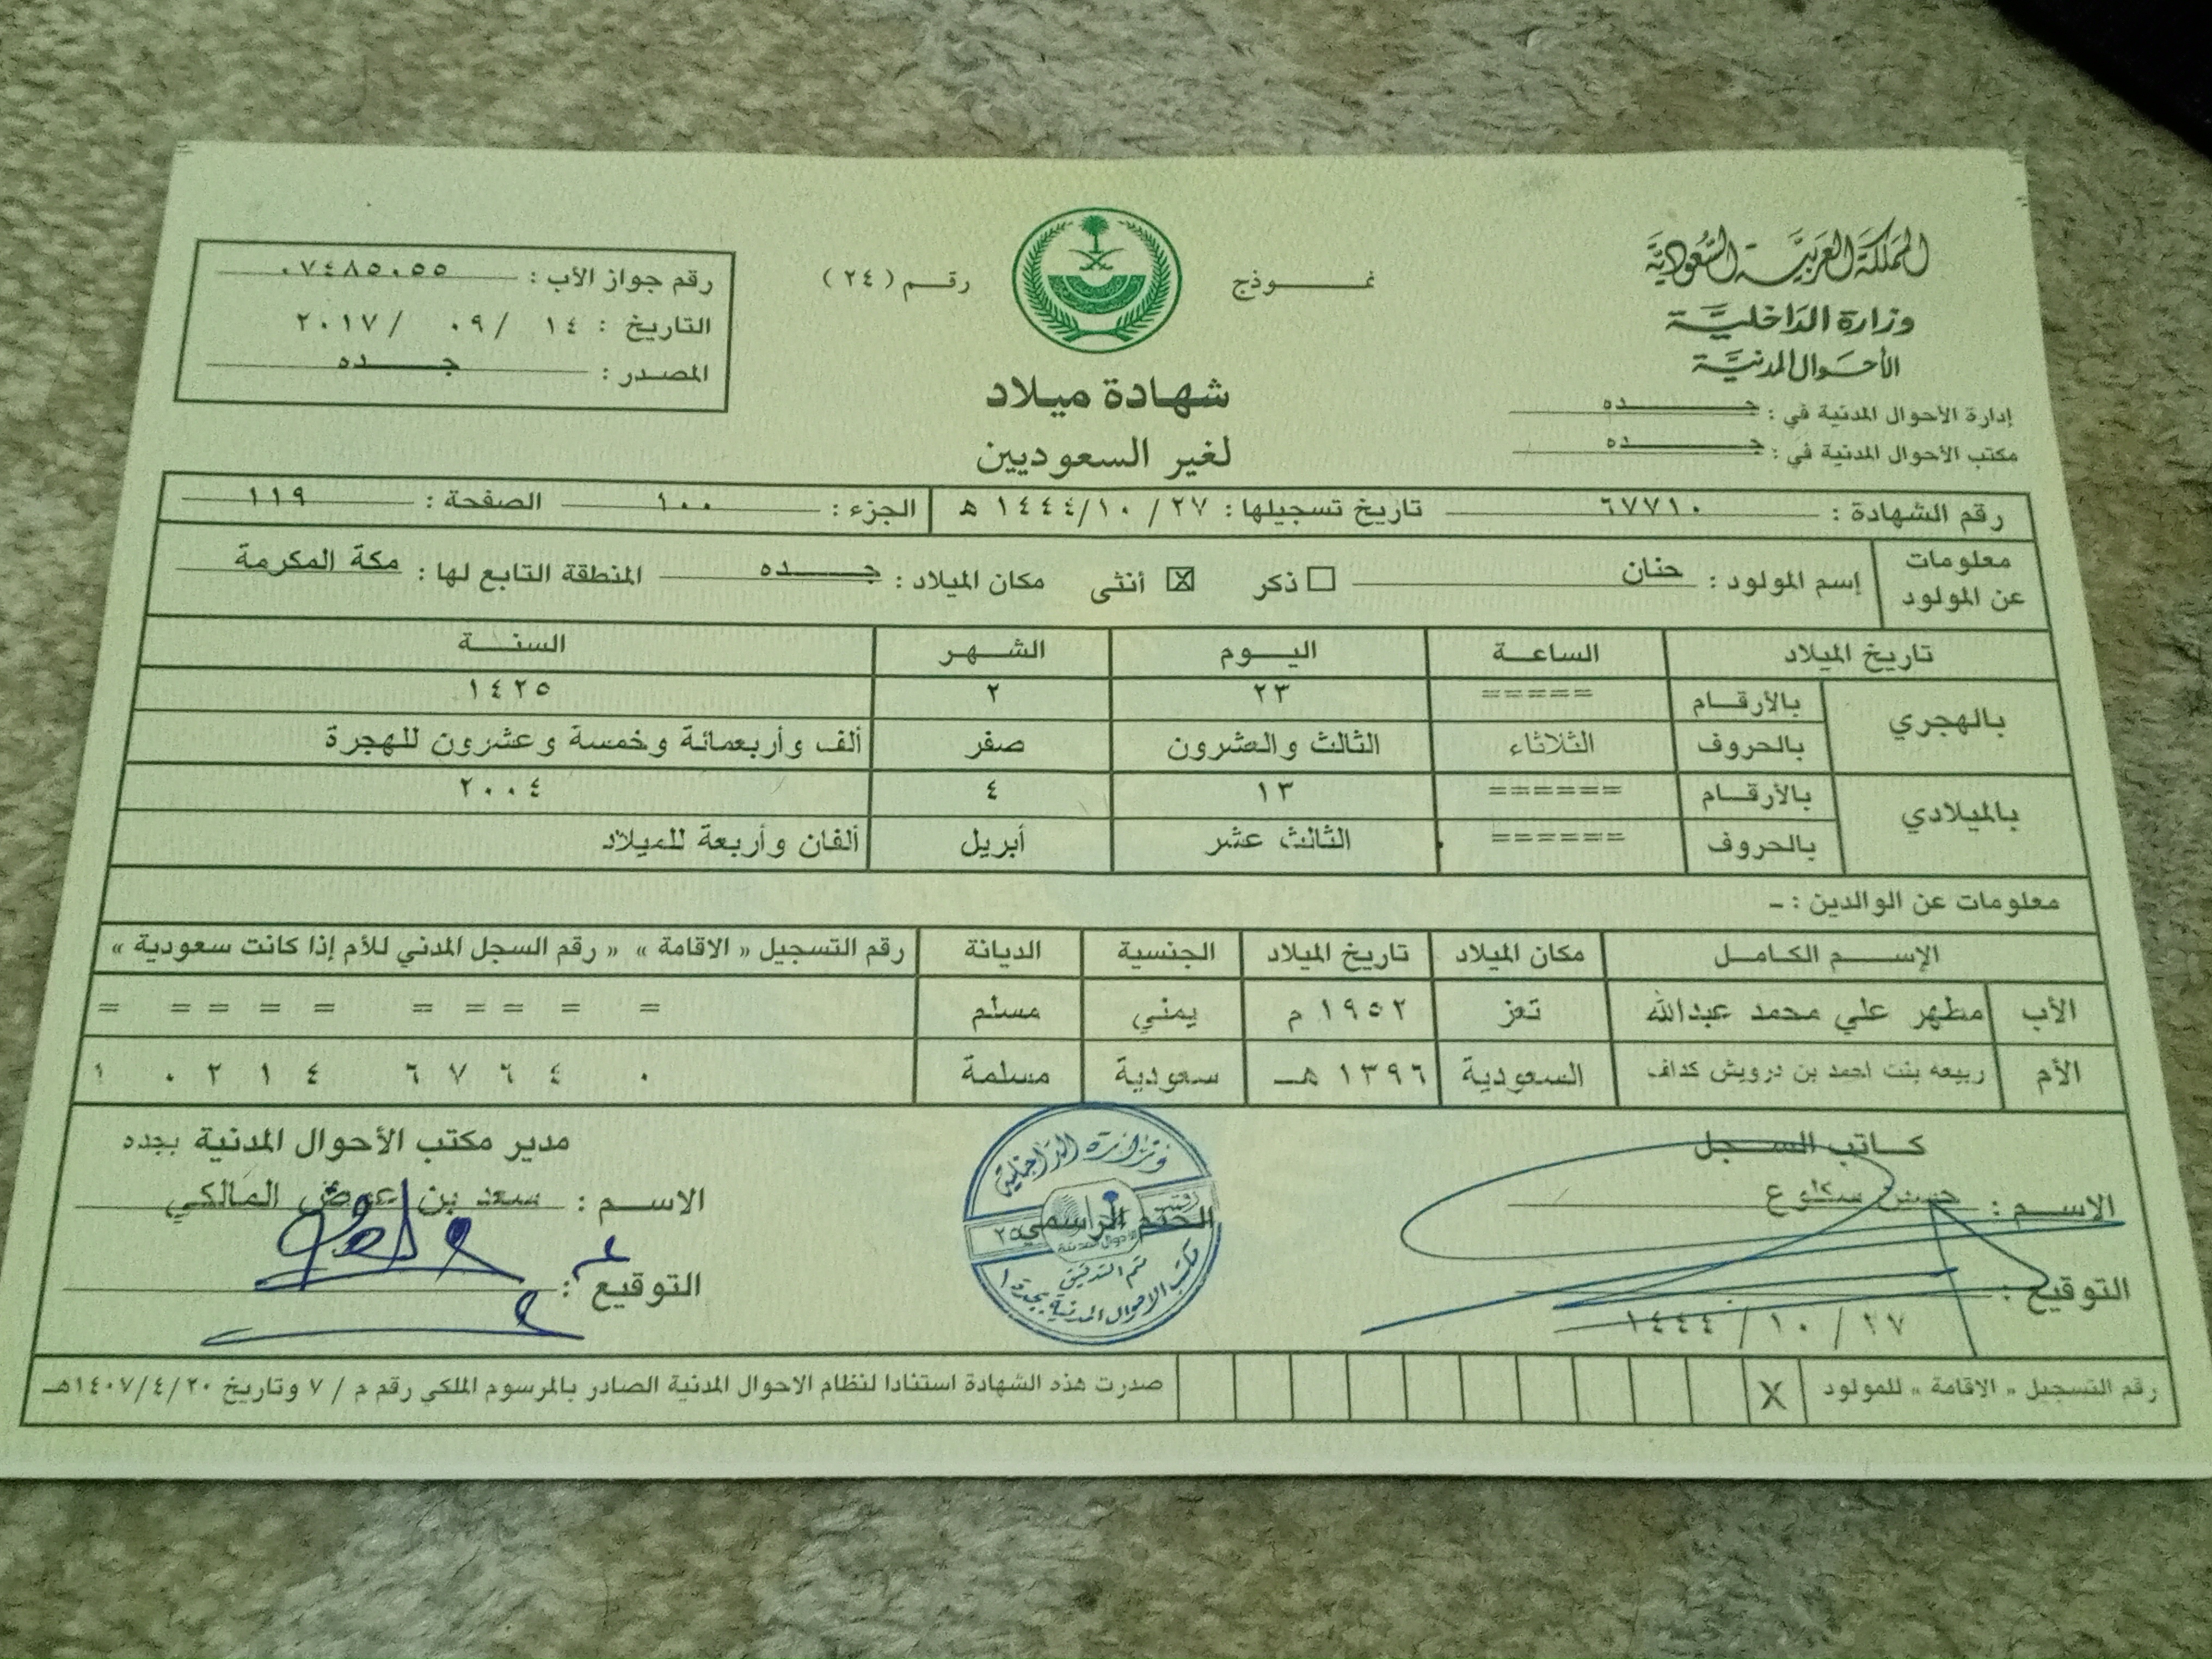 المملكة العربية السعودية
وزارة الداخلية
الأحوال المدنية
إدارة الأحوال المدنية في : جـــده
مكتب الأحوال المدنية في : جـــده
نمـــوذج رقـم ( ٢٤ )
شهادة ميلاد
لغير السعوديين
رقم جواز الأب : ٠٧٤٨٥٠٥٥
التاريخ : ١٤ / ٠٩ / ٢٠١٧
المصدر : جـــده
رقم الشهادة : ٦٧٧١٠ تاريخ تسجيلها : ٢٧ / ١٠ /١٤٤٤ هـ الجزء : ١٠٠ الصفحة : ١١٩
معلومات عن المولود إسم المولود : حنان ☐ ذكر ☒ أنثى مكان الميلاد : جـــده المنطقة التابع لها : مكة المكرمة
تاريخ الميلاد الساعـــة اليـــوم الشهـر السنـــة
بالهجري بالأرقـام ===== ٢٣ ٢ ١٤٢٥
بالحروف الثلاثاء الثالث والعشرون صفر ألف وأربعمائة وخمسة وعشرون للهجرة
بالميلادي بالأرقـام ====== ١٣ ٤ ٢٠٠٤
بالحروف ====== الثالث عشر أبريل ألفان وأربعة للميلاد
معلومات عن الوالدين : -
الإســـم الكـامـل مكان الميلاد تاريخ الميلاد الجنسية الديانة رقم التسجيل « الاقامة » « رقم السجل المدني للأم إذا كانت سعودية »
الأب مطهر علي محمد عبدالله تعز ١٩٥٢ م يمني مسلم = = = = = = = = = =
الأم ربيعه بنت احمد بن درويش كداف السعودية ١٣٩٦ هـ سعودية مسلمة ١ ٠ ٢ ١ ٤ ٦ ٧ ٦ ٤ ٠
كـاتب السـجل
الاسـم : حسن
التوقيع :
٢٧ / ١٠ / ١٤٤٤
وزارة الداخلية
الختم الرسمي
تم التدقيق
مكتب الاحوال المدنية بجدة ١
مدير مكتب الأحوال المدنية بجده
الاسـم : سعد بن عوض المالكي
التوقيع :
رقم التسجيل « الاقامة » للمولود X
صدرت هذه الشهادة استنادا لنظام الاحوال المدنية الصادر بالمرسوم الملكي رقم م / ٧ وتاريخ ١٤٠٧/٤/٢٠هـ